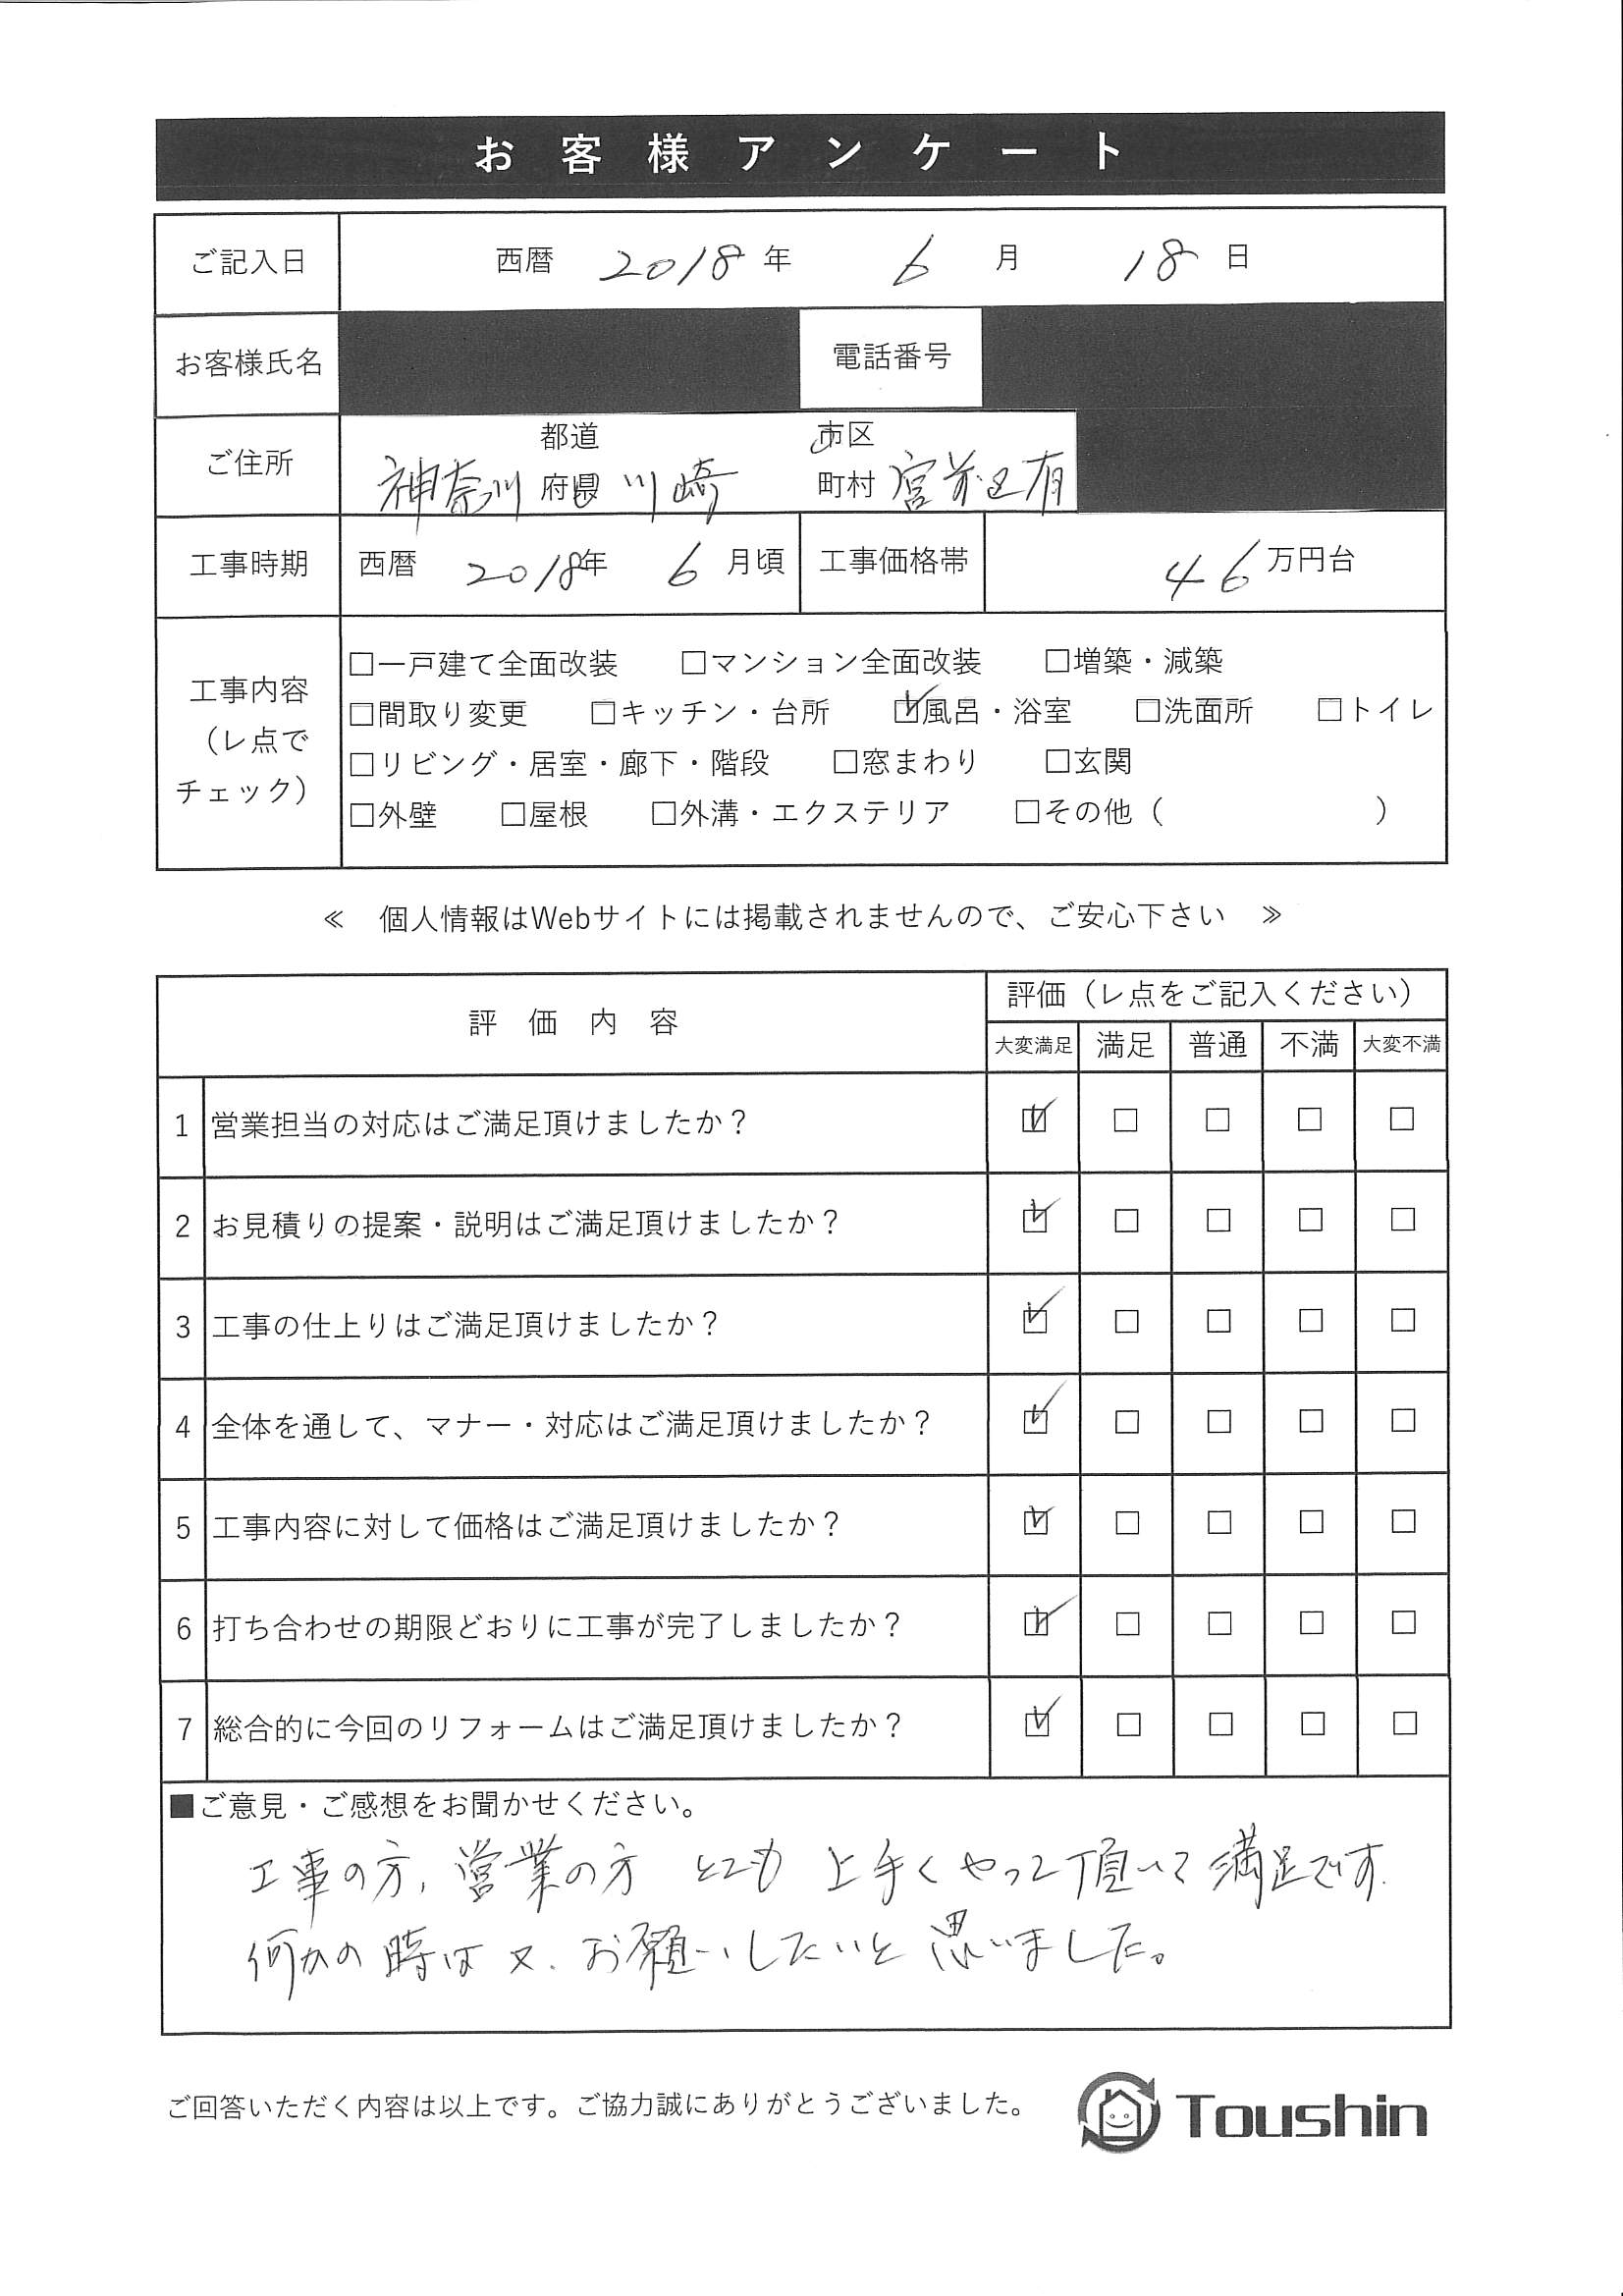 お客様アンケート
ご記入日 西暦 2018 年 6 月 18 日
お客様氏名 電話番号
ご住所 神奈川 都道府県 川崎 市区町村 宮前区有
工事時期 西暦 2018年 6 月頃 工事価格帯 46 万円台
工事内容（レ点でチェック）
□一戸建て全面改装 □マンション全面改装 □増築・減築
□間取り変更 □キッチン・台所 ☑風呂・浴室 □洗面所 □トイレ
□リビング・居室・廊下・階段 □窓まわり □玄関
□外壁 □屋根 □外溝・エクステリア □その他（ ）
≪ 個人情報はWebサイトには掲載されませんので、ご安心下さい ≫
評価内容 評価（レ点をご記入ください）
大変満足 満足 普通 不満 大変不満
1 営業担当の対応はご満足頂けましたか？ ☑ □ □ □ □
2 お見積りの提案・説明はご満足頂けましたか？ ☑ □ □ □ □
3 工事の仕上りはご満足頂けましたか？ ☑ □ □ □ □
4 全体を通して、マナー・対応はご満足頂けましたか？ ☑ □ □ □ □
5 工事内容に対して価格はご満足頂けましたか？ ☑ □ □ □ □
6 打ち合わせの期限どおりに工事が完了しましたか？ ☑ □ □ □ □
7 総合的に今回のリフォームはご満足頂けましたか？ ☑ □ □ □ □
■ご意見・ご感想をお聞かせください。
工事の方、営業の方 とても 上手くやって頂いて満足です。
何かの時は又、お願いしたいと思いました。
ご回答いただく内容は以上です。ご協力誠にありがとうございました。
Toushin